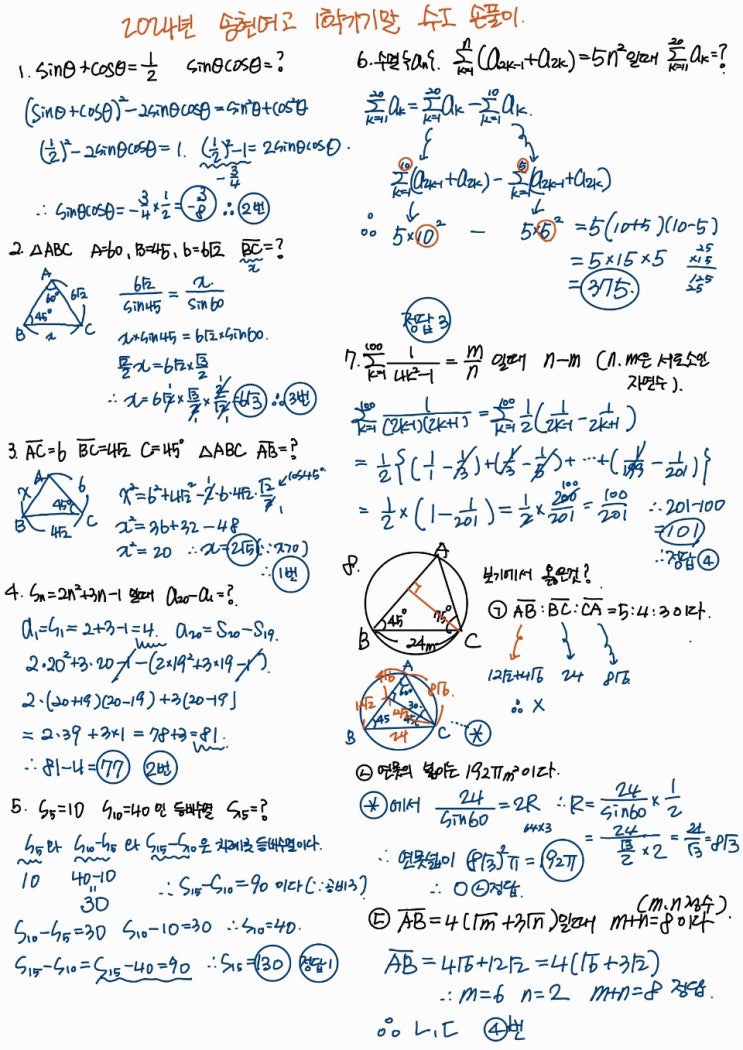 2024년 송현여고 1학기기말 수도 손풀이.
1. sinθ+cosθ=1/2 sinθcosθ=?
(sinθ+cosθ)²-2sinθcosθ=sin²θ+cos²θ
(1/2)²-2sinθcosθ=1. (1/2)²-1=2sinθcosθ.
-3/4
∴ sinθcosθ=-3/4×1/2=-3/8 ∴ 2번
2. △ABC A=60, B=45, b=6√2 BC=?
x
A 60° 6√2 45° B x C
6√2/sin45 = x/sin60
x×sin45=6√2×sin60.
√2/2 x=6√2×√3/2
∴ x=6√2×√3/2×2/√2=6√3 ∴ 3번
3. AC=6 BC=4√2 C=45° △ABC AB=?
A x 6 45° B 4√2 C
x²=6²+4√2²-2·6·4√2·√2/2 cos45°
x²=36+32-48
x²=20 ∴x=2√5(∵x>0)
∴ 1번
4. Sn=2n²+3n-1 일때 a20-a1=?
a1=S1=2+3-1=4. a20=S20-S19.
2·20²+3·20-1-(2×19²+3×19-1)
2·(20+19)(20-19)+3(20-19)
=2·39+3×1=78+3=81.
∴ 81-4=77 2번
5. S5=10 S10=40 인 등비수열 S15=?
S5 와 S10-S5 와 S15-S10은 차례로 등비수열이다.
10 40-10
=
30
∴S15-S10=90 이다(∵공비3)
S10-S5=30 S10-10=30 ∴S10=40.
S15-S10=S15-40=90 ∴S15=130 정답1
6. 수열{an}. Σ(k=1,n)(a2k-1+a2k)=5n²일때 Σ(k=11,20)ak=?
Σ(k=11,20)ak=Σ(k=1,20)ak-Σ(k=1,10)ak.
Σ(k=1,10)(a2k-1+a2k)-Σ(k=1,5)(a2k-1+a2k)
∴ 5×10² - 5×5² =5(10+5)(10-5)
=5×15×5
=375.
25
×15
125
25
정답3
7. Σ(k=1,100) 1/(4k²-1) = m/n 일때 n-m (n.m은 서로소인
자연수).
Σ(k=1,100) 1/(2k-1)(2k+1)=Σ(k=1,100) 1/2(1/(2k-1)-1/(2k+1))
=1/2{(1/1-1/3)+(1/3-1/5)+…+(1/199-1/201)}
=1/2×(1-1/201)=1/2×200/201=100/201 ∴201-100
100
=101
∴정답④
8.
A 45° 75° B 24m C
보기에서 옳은것?
㉠ AB:BC:CA=5:4:3이다.
12√2+4√6 24 8√6
∴ X
A 4√6 60° 8√6 12√2 30 45 45 B 24 C …⊛
㉡ 연못의 넓이는 192πm²이다.
⊛에서 24/sin60=2R ∴R=24/sin60×1/2
=24/(√3/2×2)=24/√3=8√3
64×3
∴ 연못넓이 (8√3)²π=192π
∴ O ㉡정답.
㉢ AB=4(√m+3√n)일때 m+n=8이다 (m.n정수)
AB=4√6+12√2=4(√6+3√2)
∴m=6 n=2 m+n=8 정답.
∴ ㄴ,ㄷ ④번